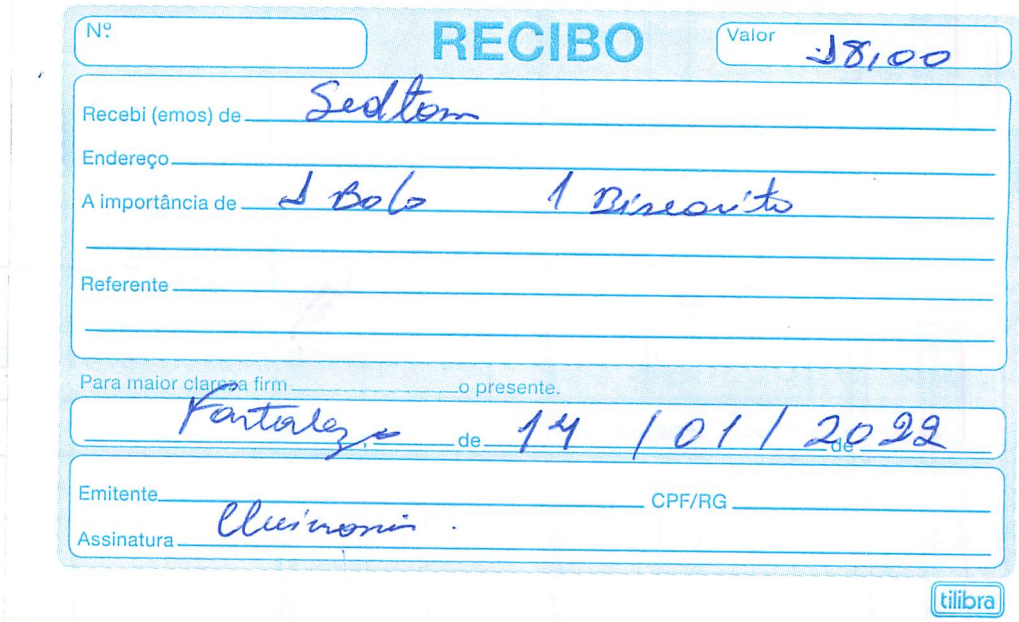 Nº RECIBO Valor 18,00
Recebi (emos) de Sedtom
Endereço
A importância de 1 Bolo 1 Biscoito
Referente
Para maior clareza firm o presente.
Fortaleza, de 14 / 01 / de 2022
Emitente CPF/RG
Assinatura
tilibra